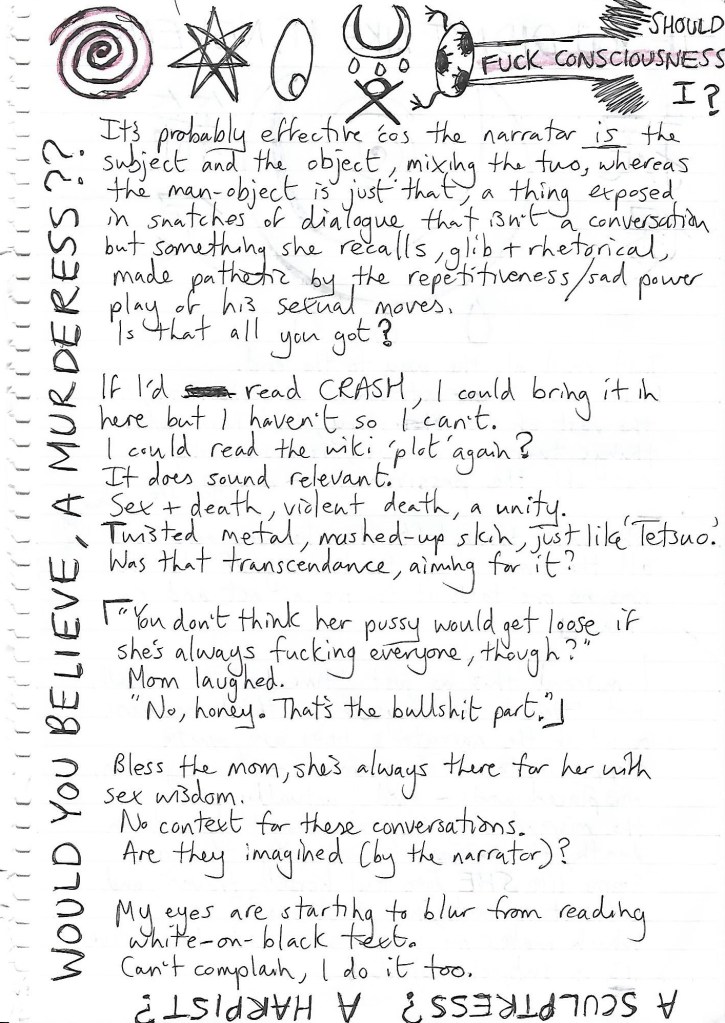 SHOULD
FUCK CONSCIOUSNESS
I?
It's probably effective 'cos the narrator is the
subject and the object, mixing the two, whereas
the man-object is just that, a thing exposed
in snatches of dialogue that isn't a conversation
but something she recalls, glib + rhetorical,
made pathetic by the repetitiveness/sad power
play of his sexual moves.
Is that all you got?
If I'd read CRASH, I could bring it in
here but I haven't so I can't.
I could read the wiki 'plot' again?
It does sound relevant.
Sex + death, violent death, a unity.
Twisted metal, mashed-up skin, just like 'Tetsuo.'
Was that transcendance, aiming for it?
"You don't think her pussy would get loose if
she's always fucking everyone, though?"
Mom laughed.
"No, honey. That's the bullshit part."
Bless the mom, she's always there for her with
sex wisdom.
No context for these conversations.
Are they imagined (by the narrator)?
My eyes are starting to blur from reading
white-on-black text.
Can't complain, I do it too.
WOULD YOU BELIEVE, A MURDERESS??
A SCULPTRESS? A HARPIST?